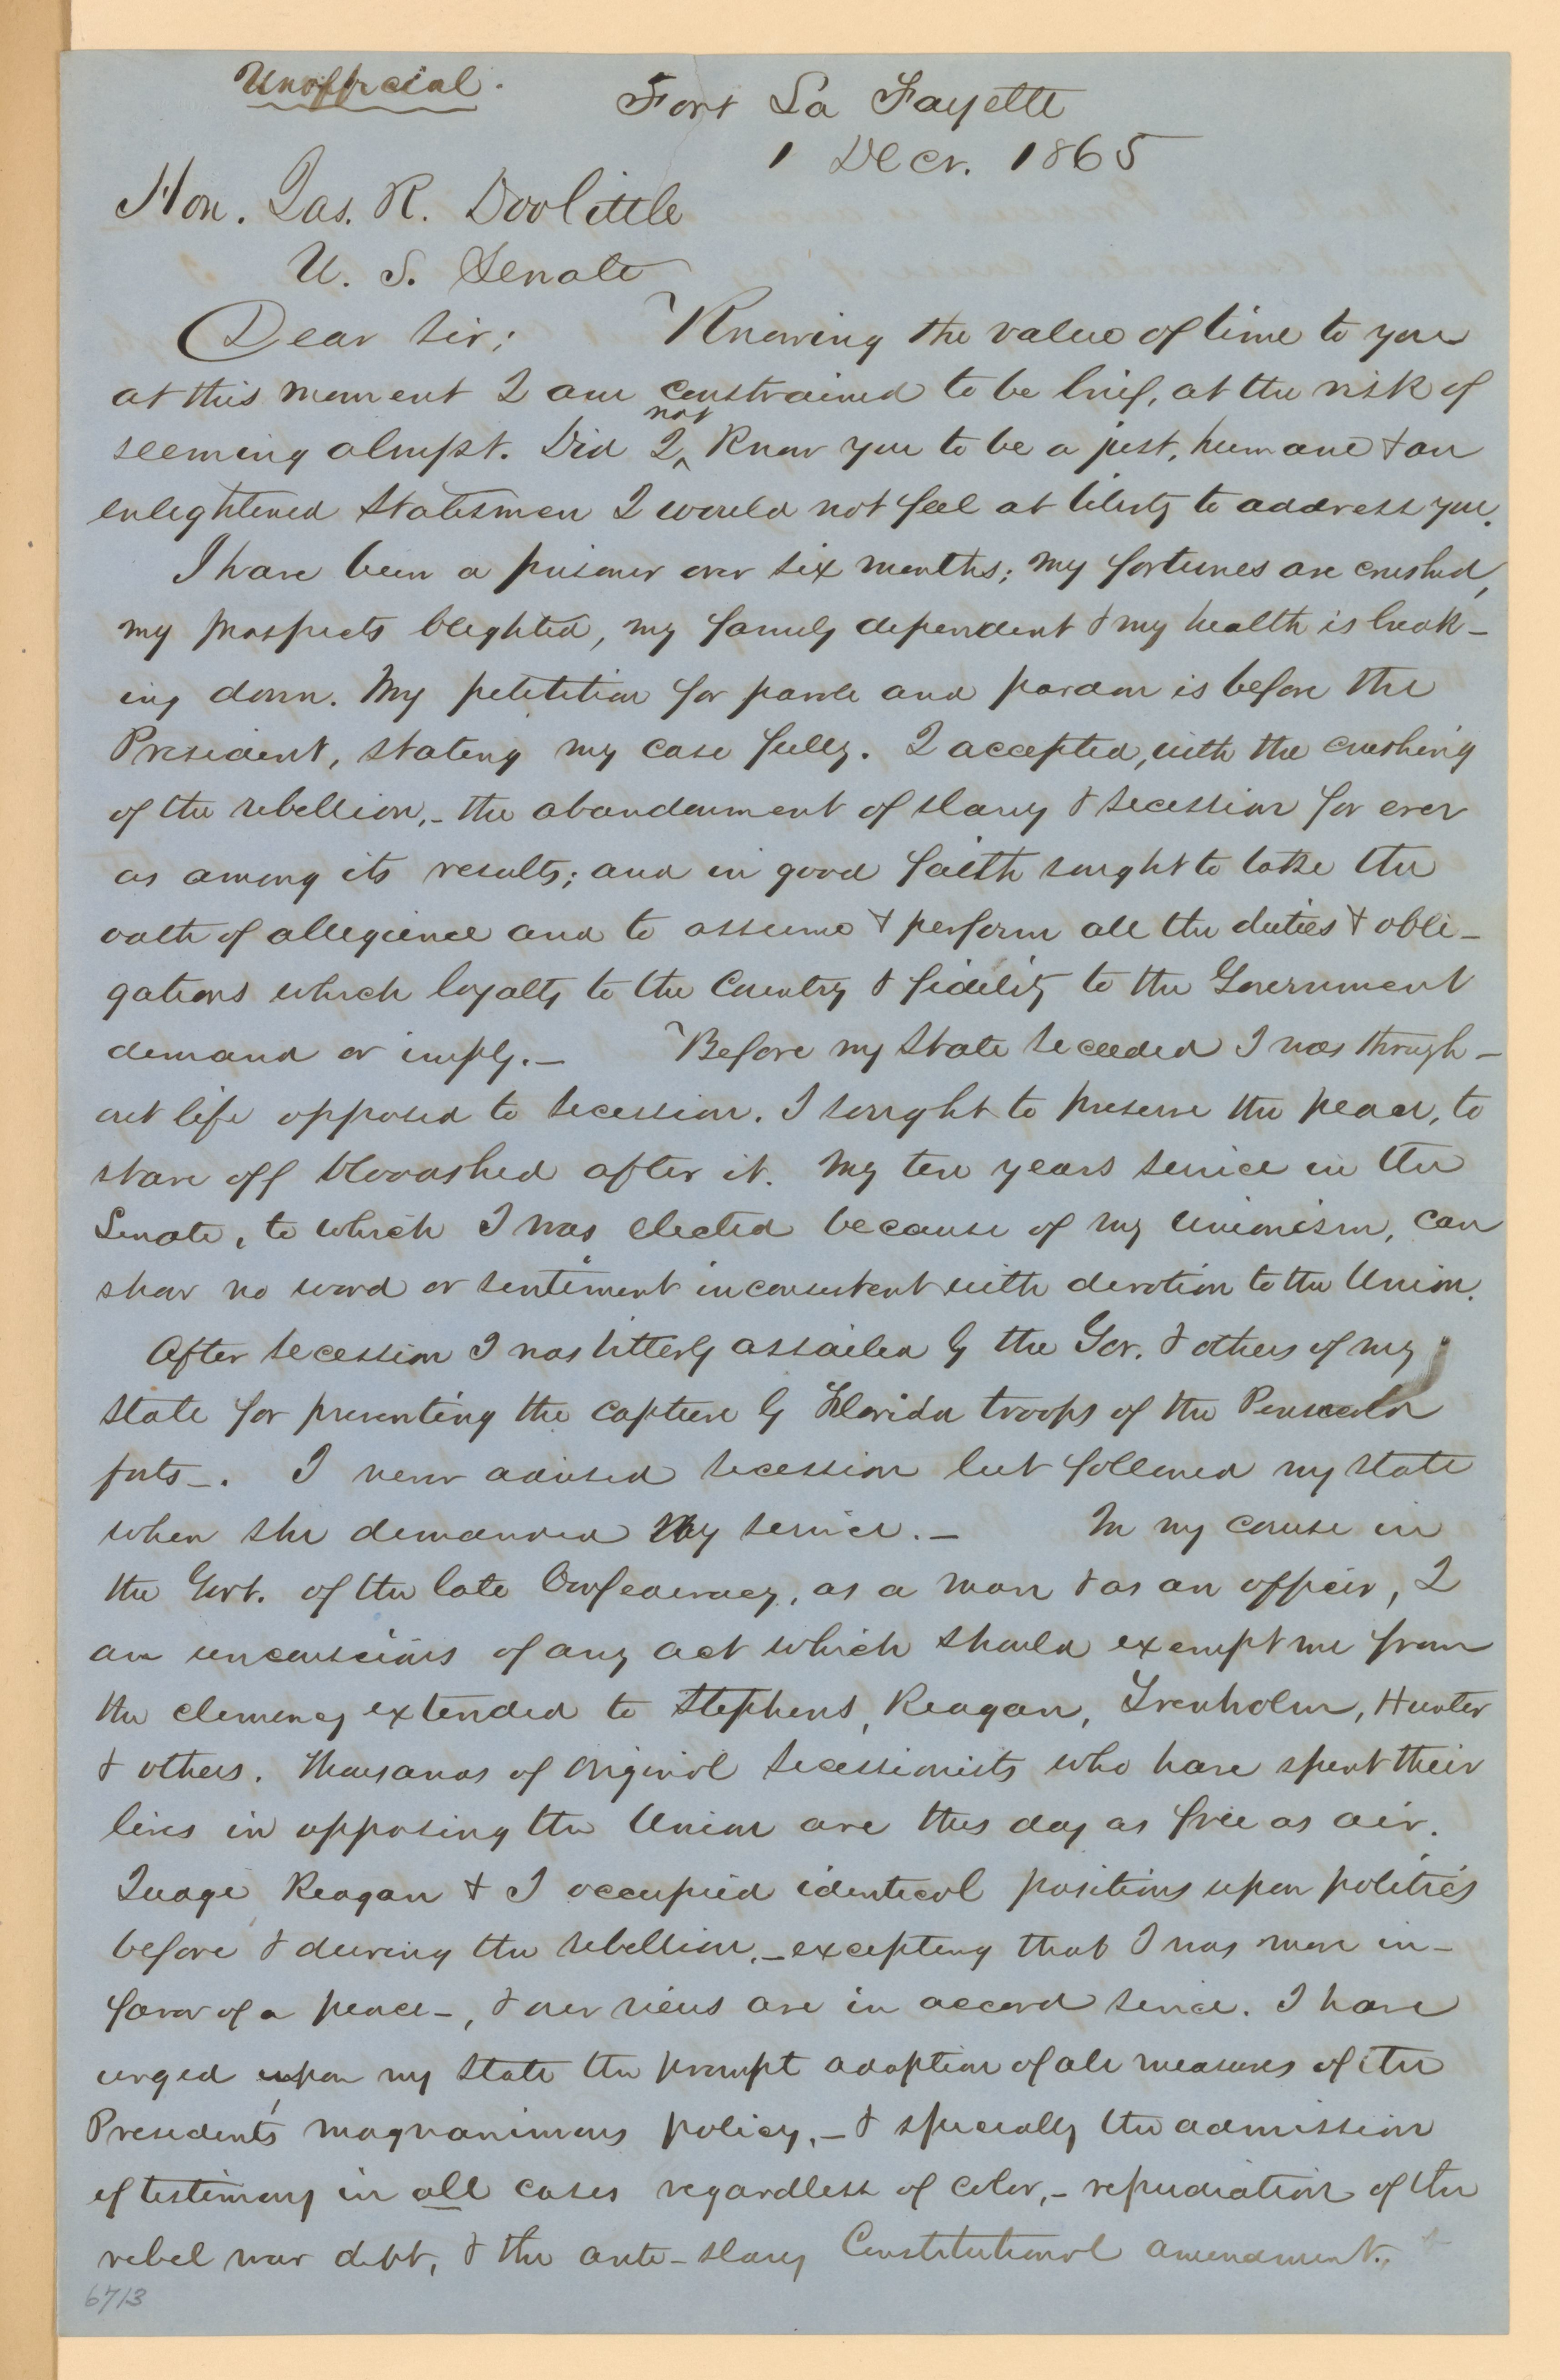 Unofficial.
Fort La Fayette
1 Decr. 1865
Hon. Jas. R. Doolittle
U. S. Senate
Dear Sir; Knowing the value of time to you
at this moment I am constrained to be brief, at the risk of
seeming abrupt. Did I not know you to be a just, humane & an
enlightened Statesman I would not feel at liberty to address you.
I have been a prisoner over six months; my fortunes are crushed,
my prospects blighted, my family dependent & my health is break-
ing down. My petitition for parole and pardon is before the
President, stating my case fully. I accepted, with the crushing
of the rebellion,- the abandonment of slavery & secession for ever
as among its results; and in good faith sought to take the
oath of allegience and to assume & perform all the duties & obli-
gations which loyalty to the Country & fidelity to the Government
demand or imply.- Before my State seceeded I was through-
out life opposed to secession. I sought to preserve the peace, to
stave off bloodshed after it. My ten years service in the
Senate, to which I was elected because of my Unionism, can
show no word or sentiment inconsistent with devotion to the Union.
After secession I was bitterly assailed by the Gov. & others of my
State for preventing the capture by Florida troops of the Pensacola
forts-. I never advised secession but followed my State
when she demanded my service.- In my course in
the Govt. of the late Confederacy, as a man & as an officer, I
am unconscious of any act which should exempt me from
the clemency extended to Stephens, Reagan, Trenholm, Hunter
& others. Thousands of original secessionists who have spent their
lives in opposing the Union are this day as free as air.
Judge Reagan & I occupied identical positions upon politics
before & during the rebellion,- excepting that I was more in-
favor of a peace-, & our views are in accord since. I have
urged upon my State the prompt adoption of all measures of the
President's magnanimous policy,- & specially the admission
of testimony in all cases regardless of color,- repudiation of the
rebel war debt, & the anti-slavery Constitutional amendment.
6713